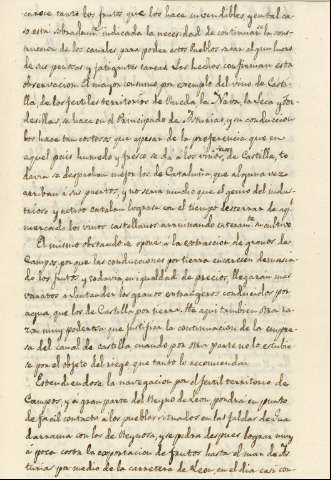 carece tanto los frutos que los hace invendibles, y en tal ca-
so esta sobradamte. indicada la necesidad de continuar la cons-
truccion de los canales para poder estos Pueblos sacar algun lucro
de sus penosas y fatigantes tareas. Los hechos confirman esta
observacion. El mayor consumo por exemplo del vino de Casti-
lla, de los fertiles territorios de Rueda, la Nava, la Seca y Tor-
desillas, se hace en el Principado de Asturias, y su conduccion
los hace tan costosos que apesar de la preferencia que en
aquel pais humedo y fresco se da à los vinos de Castilla, to
davia se despachan mejor los de Cataluña que alguna vez
arriban à sus puertos, y no será mucho que el genio del indus-
trioso y activo catalan lograse en el tiempo desterrar de aql.
mercado los vinos castellanos arruinando enteramte. su cultivo
El mismo obstaculo se opone a la extraccion de granos de
Campos, porque las conducciones por tierra encarecen demasia-
do los frutos, y todavia en igualdad de precios, llegaran mas
varatos à Santander los granos extrangeros conducidos por
agua, que los de Castilla por tierra. He aqui tambien otra ra-
zon muy poderosa que justifica la continuacion de la empre-
sa del canal de Castilla cuando por otra parte no lo estubie
se por el objeto del riego que tanto lo recomienda.
Estendiendose la navegacion por el fertil territorio de
Campos, y a gran parte del Reyno de Leon, pondra en punto
de facil contacto à los pueblos situados en las faldas de Gua
darrama con los de Reynosa, y se podra despues lograr muy
à poca costa la exportacion de frutos hasta el mar de As
turias por medio de la carretera de Leon, en el dia casi con-